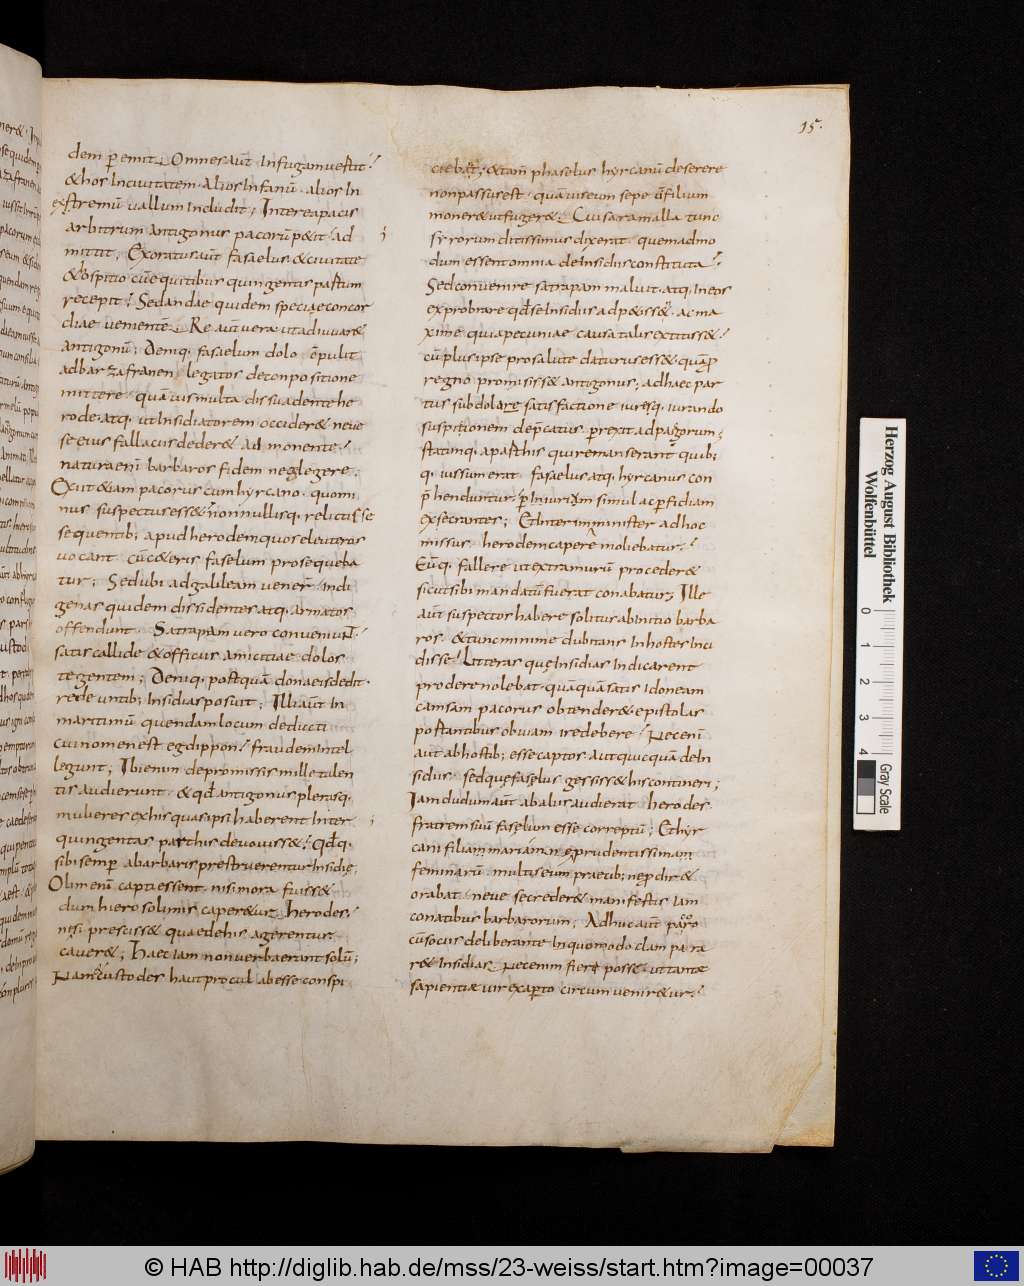 15.
dem p̄ emit. Omnes aūt Infugam uestit.
& hos Inciuitatem. Alios Infanū. alios In
extremū uallum Includit; Interea pacis
arbitrum antigonus pacorū p&it. ad
mittit. Exoratus aūt fasaelus. & ciuitate
& ospitio cūe quitibus quingentis pastum
recepit. Sedandae quidem speciae concor
diae uementē. Re aut uera. ut adiuuar&
antigonū; Deniq. fasaelum dolo cōpulit
adbarzafranen legatos de conpositione
mittere. quāuis multa dissuadente he
rode. atq. ut Insidiatorem occider& neue
se eius fallaciis deder& admonente.
natura enī barbaros fidem neglegere;
Exiit &iam pacorus cum hyrcano. quomi
nus suspectus ess& non nullisq. relictis se
sequentib; apud herodem quos eleuteros
uocant cūc&eris faselum prosequeba
tur; Sed ubi adgalileam uener̄ Indi
genas quidem dissidentes atq. armatos
offendunt. Satrapam uero conueniunt.
satis callide & officiis amicitiae dolos
tergentem; Deniq. postquā dona eis dedit.
rede untib; Insidias posuit; Illi aūt In
maritimū quendam locum deducti
cui nomen est egdippon. fraudem Intel
legunt; Ibi enim de promissis mille talen
tis audierunt. & qd̄ antigonus plerasq.
mulieres exhis quas ipsi haberent Inter
quingentas parthis deuouiss&. qd̄q.
sibi semp̄ abarbaris prestruerentur Insidię.
Olim enī capti essent. nisi mora fuiss&
dum hierosolimis caper&ur herodes.
nisi prescriss& quae dehis agerentur.
cauer&; Haec Iam non uerba erant solū;
Nam custodes haut procul abesse conspi
ciebat; &tam̄ phaselus hyrcanū deserere
non passus est. quāuis eum sepe filium
moner& ut fuger&. Cui saramalla tunc
syrorum ditissimus dixerat. quemadmo
dum essent omnia de Insidiis constituta.
Sed conuenire satrapam maluit. atq. In eos
exprobrare qd̄ se Insidiis adp&iss&. ac ma
xime qui apecuniae causa talis extitiss&.
cū plus ipse pro salute daturus ess&. quā p̄
regno promisiss& antigonus; adhaec par
tus subdolare satisfactione iuresq. iurando
suspitionem dep̄catus perext ad pacorum;
statimq. a pasthis qui remanserant quib;
q. iussum erat. fasaelus atq. hyrcanus con
p̄henduntur. p̄Iniurium simul ac perfidiam
exsecrantes; Et Inter im minister ad hoc
missus. herodem capere moliebatur.
Eūq. fallere ut extra murū proceder&
sicut sibi mandatū fuerat conabatur; Ille
aūt suspectos habere solitus abinitio barba
ros. & tunc minime dubitans In hostes Inci
disse. Litteras quę Insidias Indicarent
prodere nolebat. quāquā satis Idoneam
causam pacorus obtender& epistolas
postantibus obuiam ire debere. Nec enī
aut ab hostib; esse captos aut quicquā deIn
sidiis. sed quę faselus gessiss& his contineri;
Iam dudum aūt ab aliis audierat herodes.
fratrem suū faselum esse correptū; Et hyr
cani filiam mariamn ę prudentissimam
feminarū. multis eum praecib; nep̄ dir&
orabat. neue se creder& manifestis Iam
conatibus barbarorum; Adhuc autē pacoro
cū sociis deliberante In quomodo clam para
r& Insidias. Nec enim fieri posse. ut tantae
sapientiae uir ex aperto circumuenir&ur.
Herzog August Bibliothek
Wolfenbüttel
0 1 2 3 4
Gray Scale
© HAB http://diglib.hab.de/mss/23-weiss/start.htm?image=00037